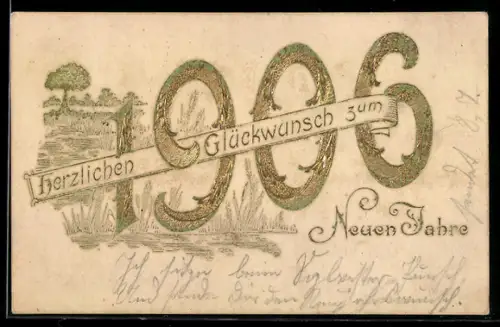 1906
Herzlichen Glückwunsch zum
Neuen Jahre
Ich sitze beim Sylvester Punsch
Und sende Dir den Neujahrswunsch.